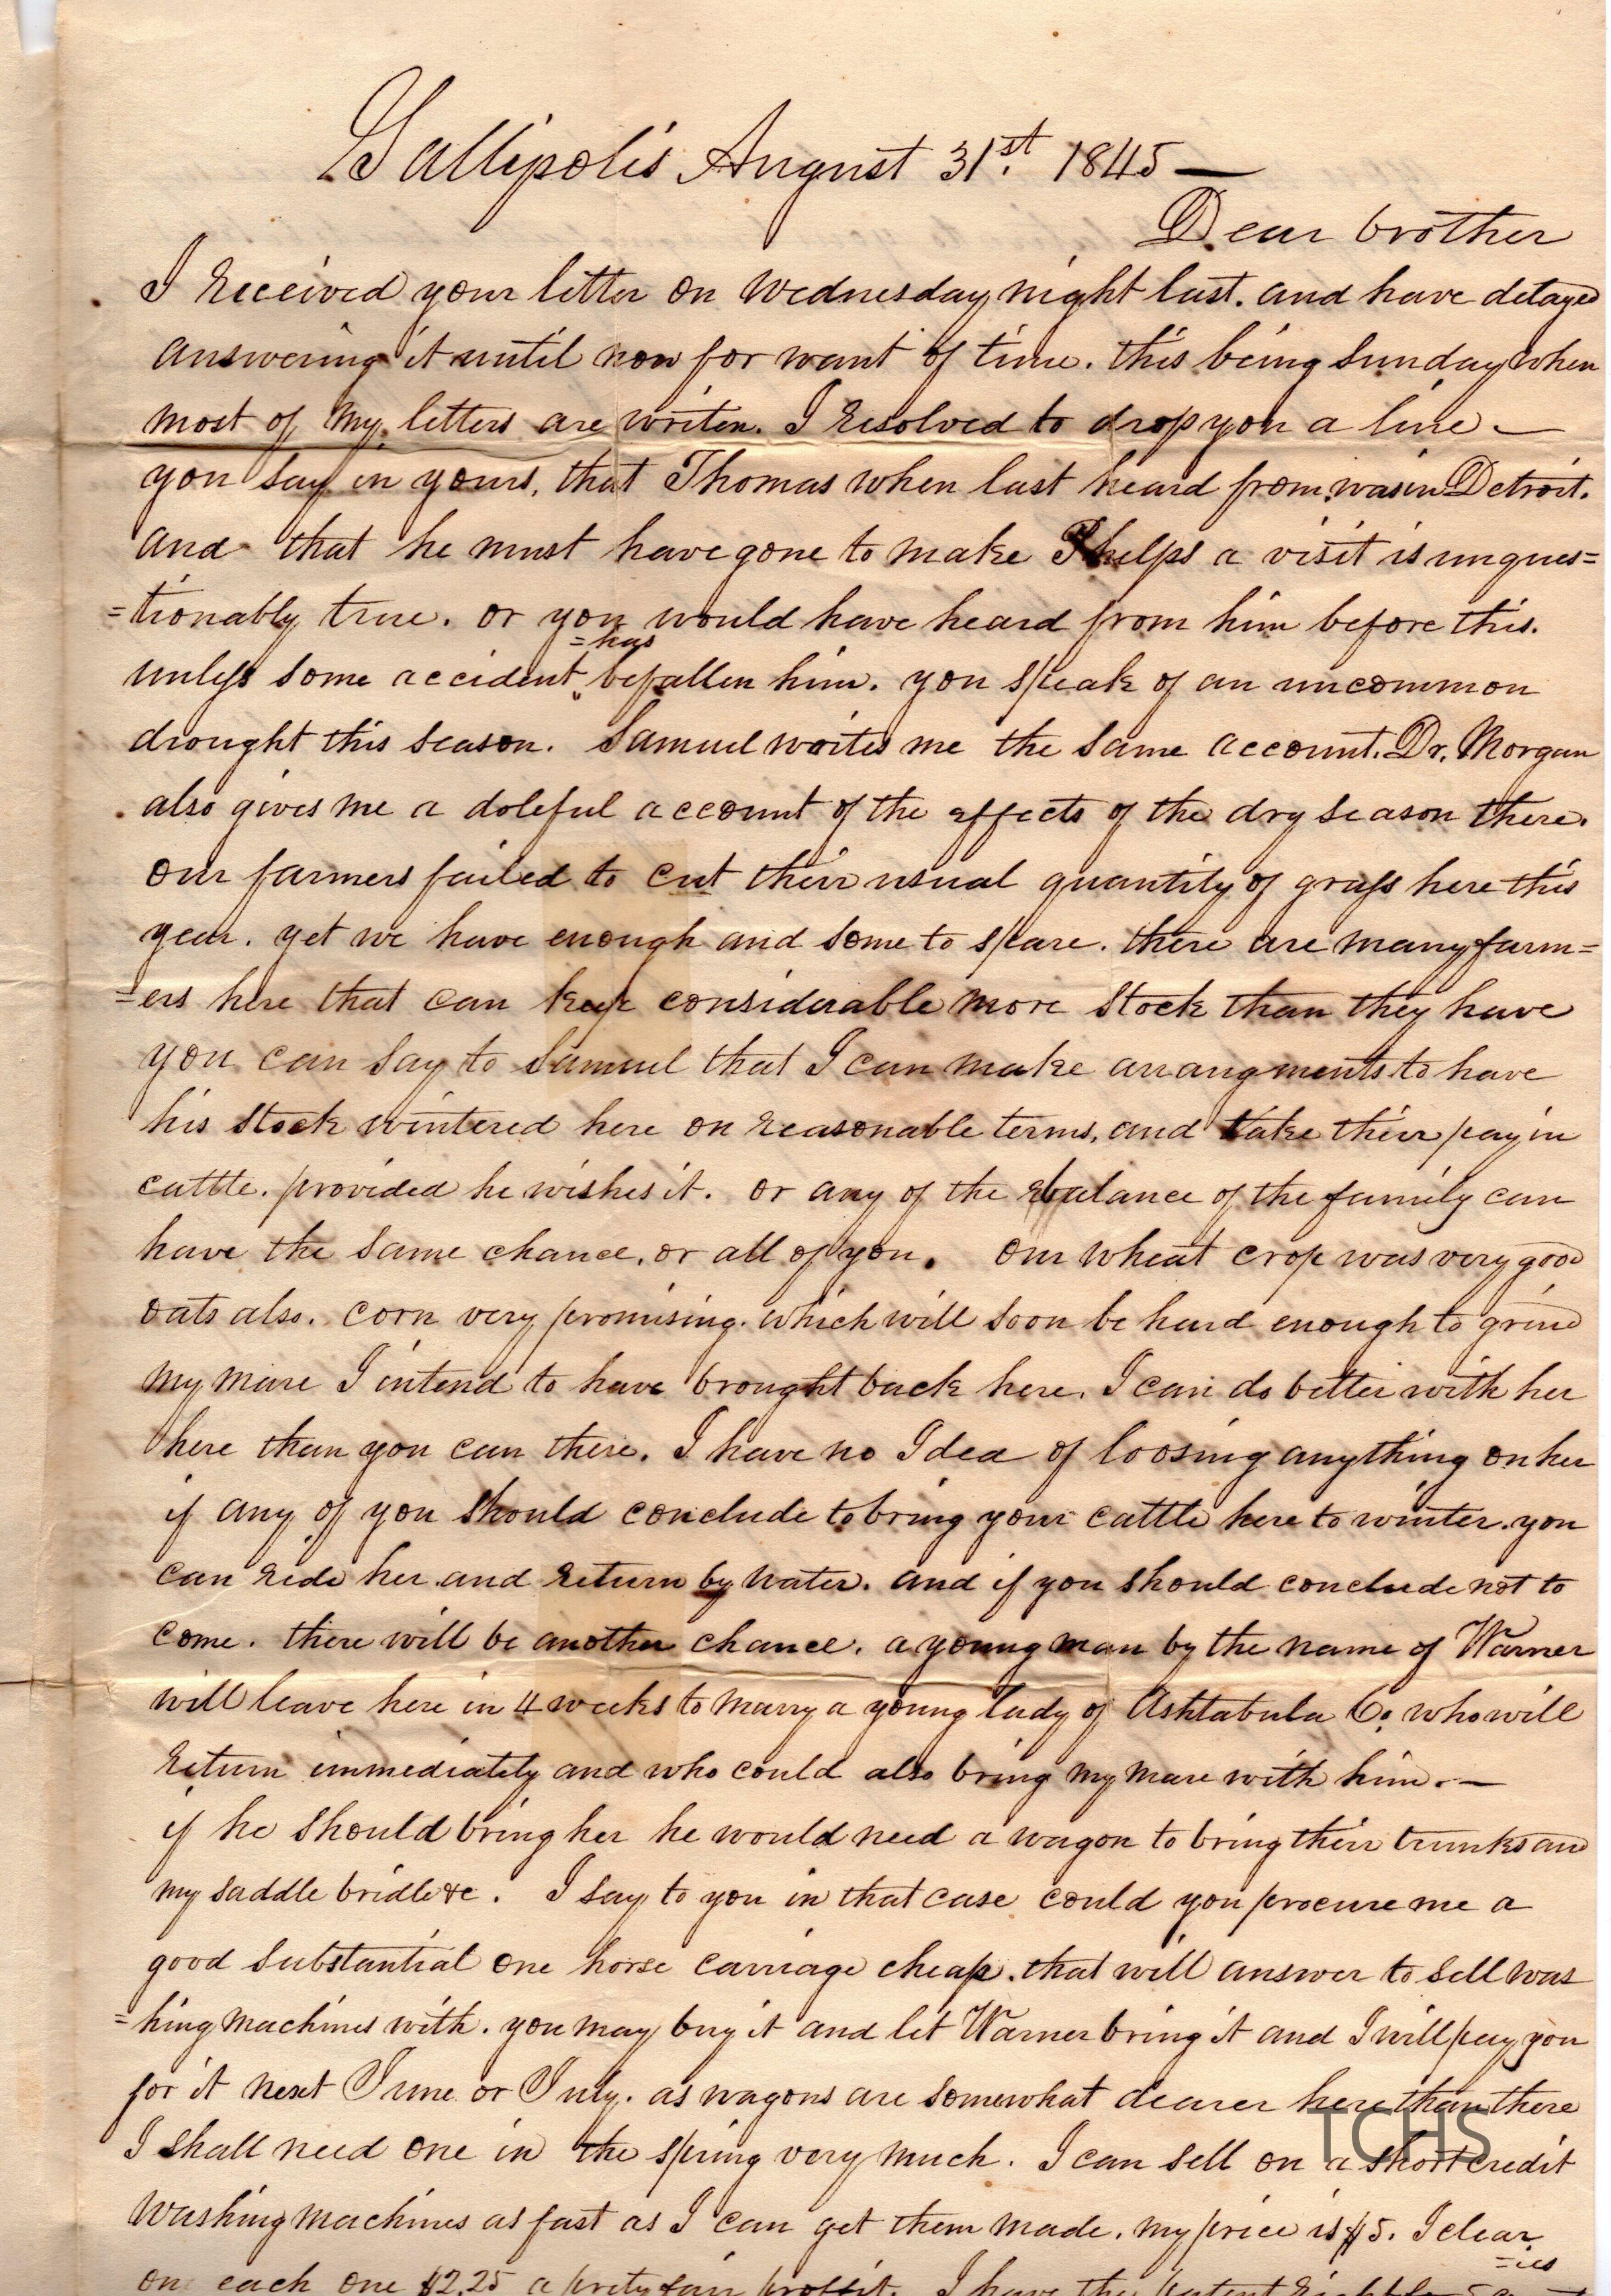 Gallipolis August 31st. 1845 —
Dear brother
I received your letter on Wednesday night last. and have delayed
answering it until now for want of time. this being Sunday when
most of my letters are writen. I resolved to drop you a line —
you say in yours, that Thomas when last heard from was in Detroit.
and that he must have gone to make Phelps a visit is unques=
=tionably true. or you would have heard from him before this.
=has
unless some accident befallen him. you speak of an uncommon
drought this season. Samuel writes me the same account. Dr. Morgan
also gives me a doleful account of the effects of the dry season there.
our farmers failed to cut their usual quantity of grass here this
year. yet we have enough and some to spare. there are many farm=
=ers here that can keep considerable more stock than they have
you can say to Samuel that I can make arrangments to have
his stock wintered here on reasonable terms, and take their pay in
cattle. provided he wishes it. or any of the balance of the family can
have the same chance, or all of you. our wheat crop was very good
oats also. corn very promising. which will soon be hard enough to grind
my mare I intend to have brought back here. I can do better with her
here than you can there. I have no Idea of loosing anything on her
if any of you should conclude to bring your cattle here to winter. you
can ride her and return by water. and if you should conclude not to
come. there will be another chance. a young man by the name of Warner
will leave here in 4 weeks to marry a young lady of Ashtabula Co. who will
return immediately and who could also bring my mare with him. —
if he should bring her he would need a wagon to bring their trunks and
my saddle bridle &c. I say to you in that case could you procure me a
good substantial one horse carriage cheap. that will answer to sell was
=hing machines with. you may buy it and let Warner bring it and I will pay you
for it next June or July. as wagons are somewhat dearer here than there
I shall need one in the spring very much. I can sell on a short credit
TCHS
washing machines as fast as I can get them made. my price is $5. I clear
=ies
on each one $2.25 a prety fair proffit. I have the patent right